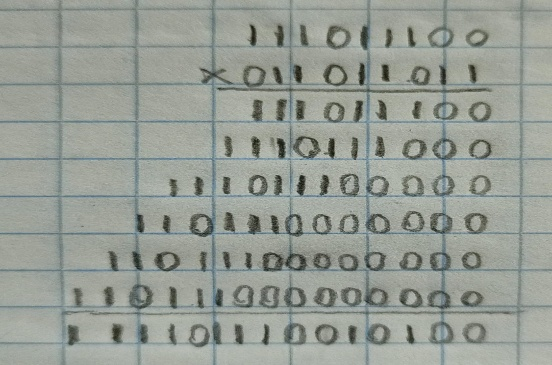 111011100
×011011011
111011100
1110111000
111011100000
11011100000000
11011100000000
1101110000000000
111101110010100